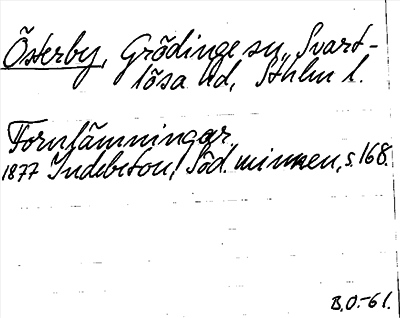 Österby, Grödinge sn, Svart-
lösa hd, Sthlm l.
Fornlämningar.
1877 Indebetou, Söd. minnen, s. 168.
B.O.-61.